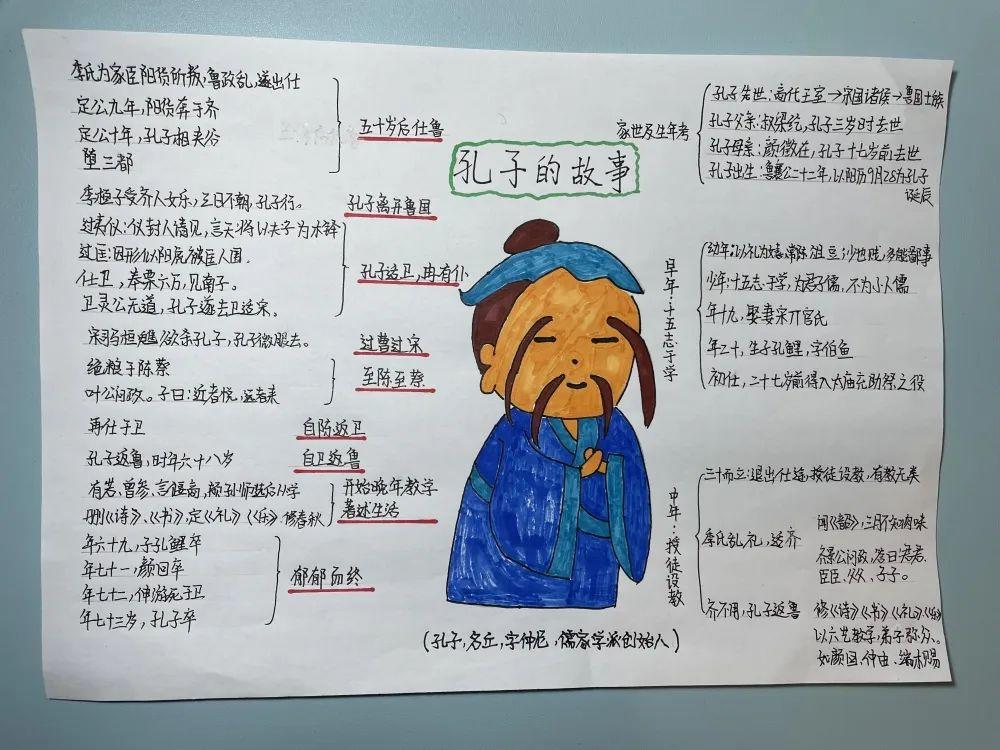 孔子的故事
家世及生年考
孔子先世：商代王室→宋国诸侯→鲁国士族
孔子父亲：叔梁纥，孔子三岁时去世
孔子母亲：颜徵在，孔子十七岁前去世
孔子出生：鲁襄公二十二年，以阳历9月28为孔子
诞辰
早年·十五志于学
幼年：以礼为嬉，常陈俎豆；少也贱，多能鄙事
少年：十五志于学，为君子儒，不为小人儒
年十九，娶妻宋亓官氏
年二十，生子孔鲤，字伯鱼
初仕，二十七岁前得入太庙充助祭之役
中年·授徒设教
三十而立：退出仕途，授徒设教，有教无类
季氏乱礼，适齐
闻《韶》，三月不知肉味
齐景公问政，答曰君君、
臣臣、父父、子子。
齐不用，孔子返鲁
修《诗》《书》《礼》《乐》
以六艺教学，弟子弥众、
如颜回、仲由、端木赐
五十岁后仕鲁
季氏为家臣阳货所叛，鲁政乱，遂出仕
定公九年，阳货奔于齐
定公十年，孔子相夹谷
堕三都
孔子离开鲁国
季桓子受齐人女乐，三日不朝，孔子行。
孔子适卫，冉有仆
过仪：仪封人请见，言天将以夫子为木铎
过匡：因形似阳虎被匡人围。
仕卫，奉粟六万，见南子。
卫灵公无道，孔子遂去卫适宋。
过曹过宋
宋司马桓魋欲杀孔子，孔子微服去。
至陈至蔡
绝粮于陈蔡
叶公问政。子曰：近者悦，远者来
自陈返卫
再仕于卫
自卫返鲁
孔子返鲁，时年六十八岁
开始晚年教学
著述生活
有若、曾参、言偃、颛孙师进后从学
删《诗》、《书》，定《礼》《乐》，修春秋
郁郁而终
年六十九，子孔鲤卒
年七十一，颜回卒
年七十二，仲游死于卫
年七十三岁，孔子卒
（孔子，名丘，字仲尼，儒家学派创始人）